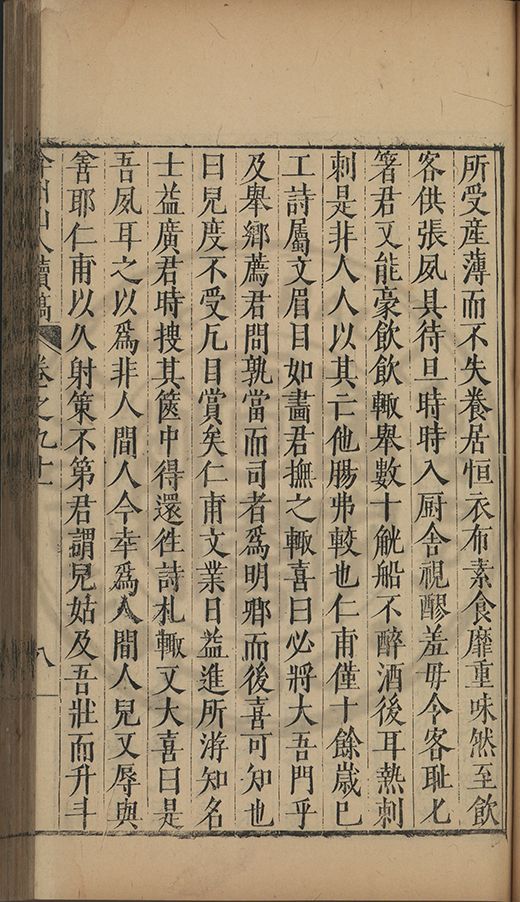 所受産薄而不失養居恒衣布素食靡重味然至飲
客供張夙具待旦時時入厨舍視醪羞毋令客耻匕
箸君又能豪飲飲輙舉數十觥船不醉酒後耳熱刺
刺是非人人以其亡他膓弗較也仁甫僅十餘歲已
工詩屬文眉目如畵君撫之輙喜曰必將大吾門乎
及舉鄉薦君問孰當而司者爲明卿而後喜可知也
曰兒度不受凢目賞矣仁甫文業日益進所游知名
士益廣君時搜其篋中得還徃詩札輙又大喜曰是
吾夙耳之以爲非人間人今幸爲人間人兒又辱與
善耶仁甫以久射策不第君謂兒姑及吾壯而升斗
弇州山人續稿 卷之九十一 八